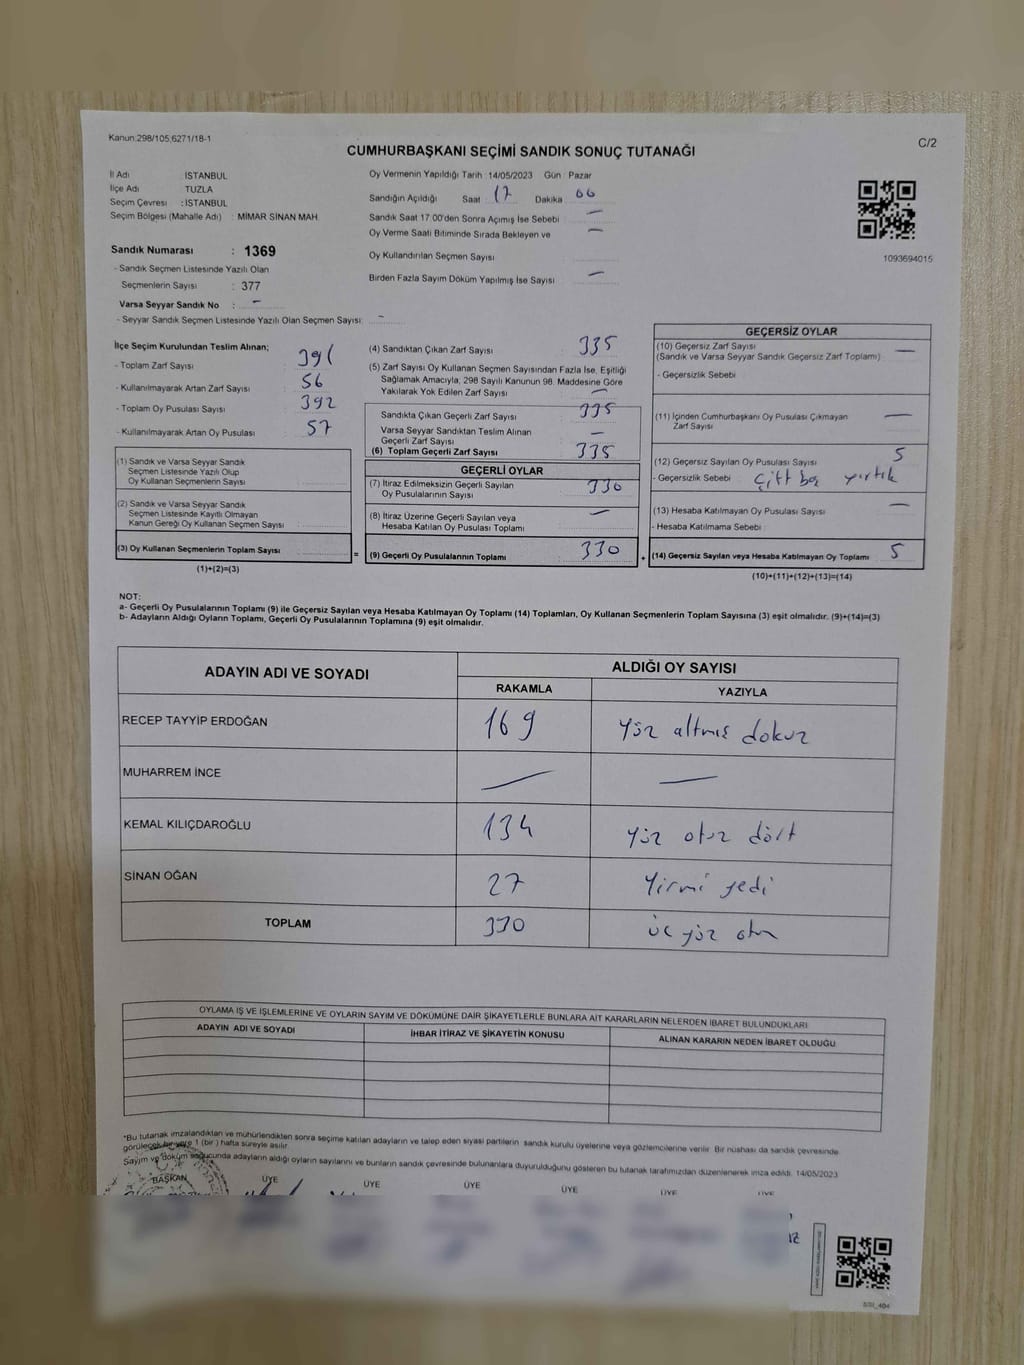 Kanun:298/105;6271/18-1
C/2
CUMHURBAŞKANI SEÇİMİ SANDIK SONUÇ TUTANAĞI
İl Adı İSTANBUL
İlçe Adı TUZLA
Seçim Çevresi : İSTANBUL
Seçim Bölgesi (Mahalle Adı) : MİMAR SİNAN MAH.
Sandık Numarası : 1369
- Sandık Seçmen Listesinde Yazılı Olan
Seçmenlerin Sayısı : 377
Varsa Seyyar Sandık No : -
- Seyyar Sandık Seçmen Listesinde Yazılı Olan Seçmen Sayısı: -
Oy Vermenin Yapıldığı Tarih :14/05/2023 Gün : Pazar
Sandığın Açıldığı Saat 17 Dakika 00
Sandık Saat 17.00'den Sonra Açımış İse Sebebi -
Oy Verme Saati Bitiminde Sırada Bekleyen ve -
Oy Kullandırılan Seçmen Sayısı
Birden Fazla Sayım Döküm Yapılmış İse Sayısı -
1093694015
İlçe Seçim Kurulundan Teslim Alınan;
- Toplam Zarf Sayısı 391
- Kullanılmayarak Artan Zarf Sayısı 56
- Toplam Oy Pusulası Sayısı 392
- Kullanılmayarak Artan Oy Pusulası 57
(1) Sandık ve Varsa Seyyar Sandık
Seçmen Listesinde Yazılı Olup
Oy Kullanan Seçmenlerin Sayısı
(2) Sandık ve Varsa Seyyar
Sandık Seçmen Listesinde Kayıtlı Olmayan
Kanun Gereği Oy Kullanan Seçmen Sayısı :
(3) Oy Kullanan Seçmenlerin Toplam Sayısı
(1)+(2)=(3)
(4) Sandıktan Çıkan Zarf Sayısı 335
(5) Zarf Sayısı Oy Kullanan Seçmen Sayısından Fazla İse, Eşitliği
Sağlamak Amacıyla, 298 Sayılı Kanunun 98. Maddesine Göre
Yakılarak Yok Edilen Zarf Sayısı -
Sandıkta Çıkan Geçerli Zarf Sayısı 335
Varsa Seyyar Sandıktan Teslim Alınan -
Geçerli Zarf Sayısı
(6) Toplam Geçerli Zarf Sayısı 335
GEÇERLİ OYLAR
(7) İtiraz Edilmeksizin Geçerli Sayılan 330
Oy Pusulalarının Sayısı
(8) İtiraz Üzerine Geçerli Sayılan veya -
Hesaba Katılan Oy Pusulası Toplamı
= (9) Geçerli Oy Pusulalarının Toplamı 330 +
GEÇERSİZ OYLAR
(10) Geçersiz Zarf Sayısı -
(Sandık ve Varsa Seyyar Sandık Geçersiz Zarf Toplamı)
- Geçersizlik Sebebi
(11) İçinden Cumhurbaşkanı Oy Pusulası Çıkmayan -
Zarf Sayısı
(12) Geçersiz Sayılan Oy Pusulası Sayısı 5
- Geçersizlik Sebebi Çift boş yırtık
(13) Hesaba Katılmayan Oy Pusulası Sayısı -
- Hesaba Katılmama Sebebi :
(14) Geçersiz Sayılan veya Hesaba Katılmayan Oy Toplamı 5
(10)+(11)+(12)+(13)=(14)
NOT:
a- Geçerli Oy Pusulalarının Toplamı (9) ile Geçersiz Sayılan veya Hesaba Katılmayan Oy Toplamı (14) Toplamları, Oy Kullanan Seçmenlerin Toplam Sayısına (3) eşit olmalıdır. (9)+(14)=(3)
b- Adayların Aldığı Oyların Toplamı, Geçerli Oy Pusulalarının Toplamına (9) eşit olmalıdır.
ADAYIN ADI VE SOYADI ALDIĞI OY SAYISI
RAKAMLA YAZIYLA
RECEP TAYYİP ERDOĞAN 169 yüz altmış dokuz
MUHARREM İNCE - -
KEMAL KILIÇDAROĞLU 134 yüz otuz dört
SİNAN OĞAN 27 Yirmi yedi
TOPLAM 330 üç yüz otuz
OYLAMA İŞ VE İŞLEMLERİNE VE OYLARIN SAYIM VE DÖKÜMÜNE DAİR ŞİKAYETLERLE BUNLARA AİT KARARLARIN NELERDEN İBARET BULUNDUKLARI
ADAYIN ADI VE SOYADI İHBAR İTİRAZ VE ŞİKAYETİN KONUSU ALINAN KARARIN NEDEN İBARET OLDUĞU
*Bu tutanak imzalandıktan ve mühürlendikten sonra seçime katılan adayların ve talep eden siyasi partilerin sandık kurulu üyelerine veya gözlemcilerine verilir. Bir nüshası da sandık çevresinde
görülecek bir yere 1 (bir ) hafta süreyle asılır.
Sayım ve döküm sonucunda adayların aldığı oyların sayılarını ve bunların sandık çevresinde bulunanlara duyurulduğunu gösteren bu tutanak tarafımızdan düzenlenerek imza edildi. 14/05/2023
BAŞKAN ÜYE ÜYE ÜYE ÜYE ÜYE ÜYE